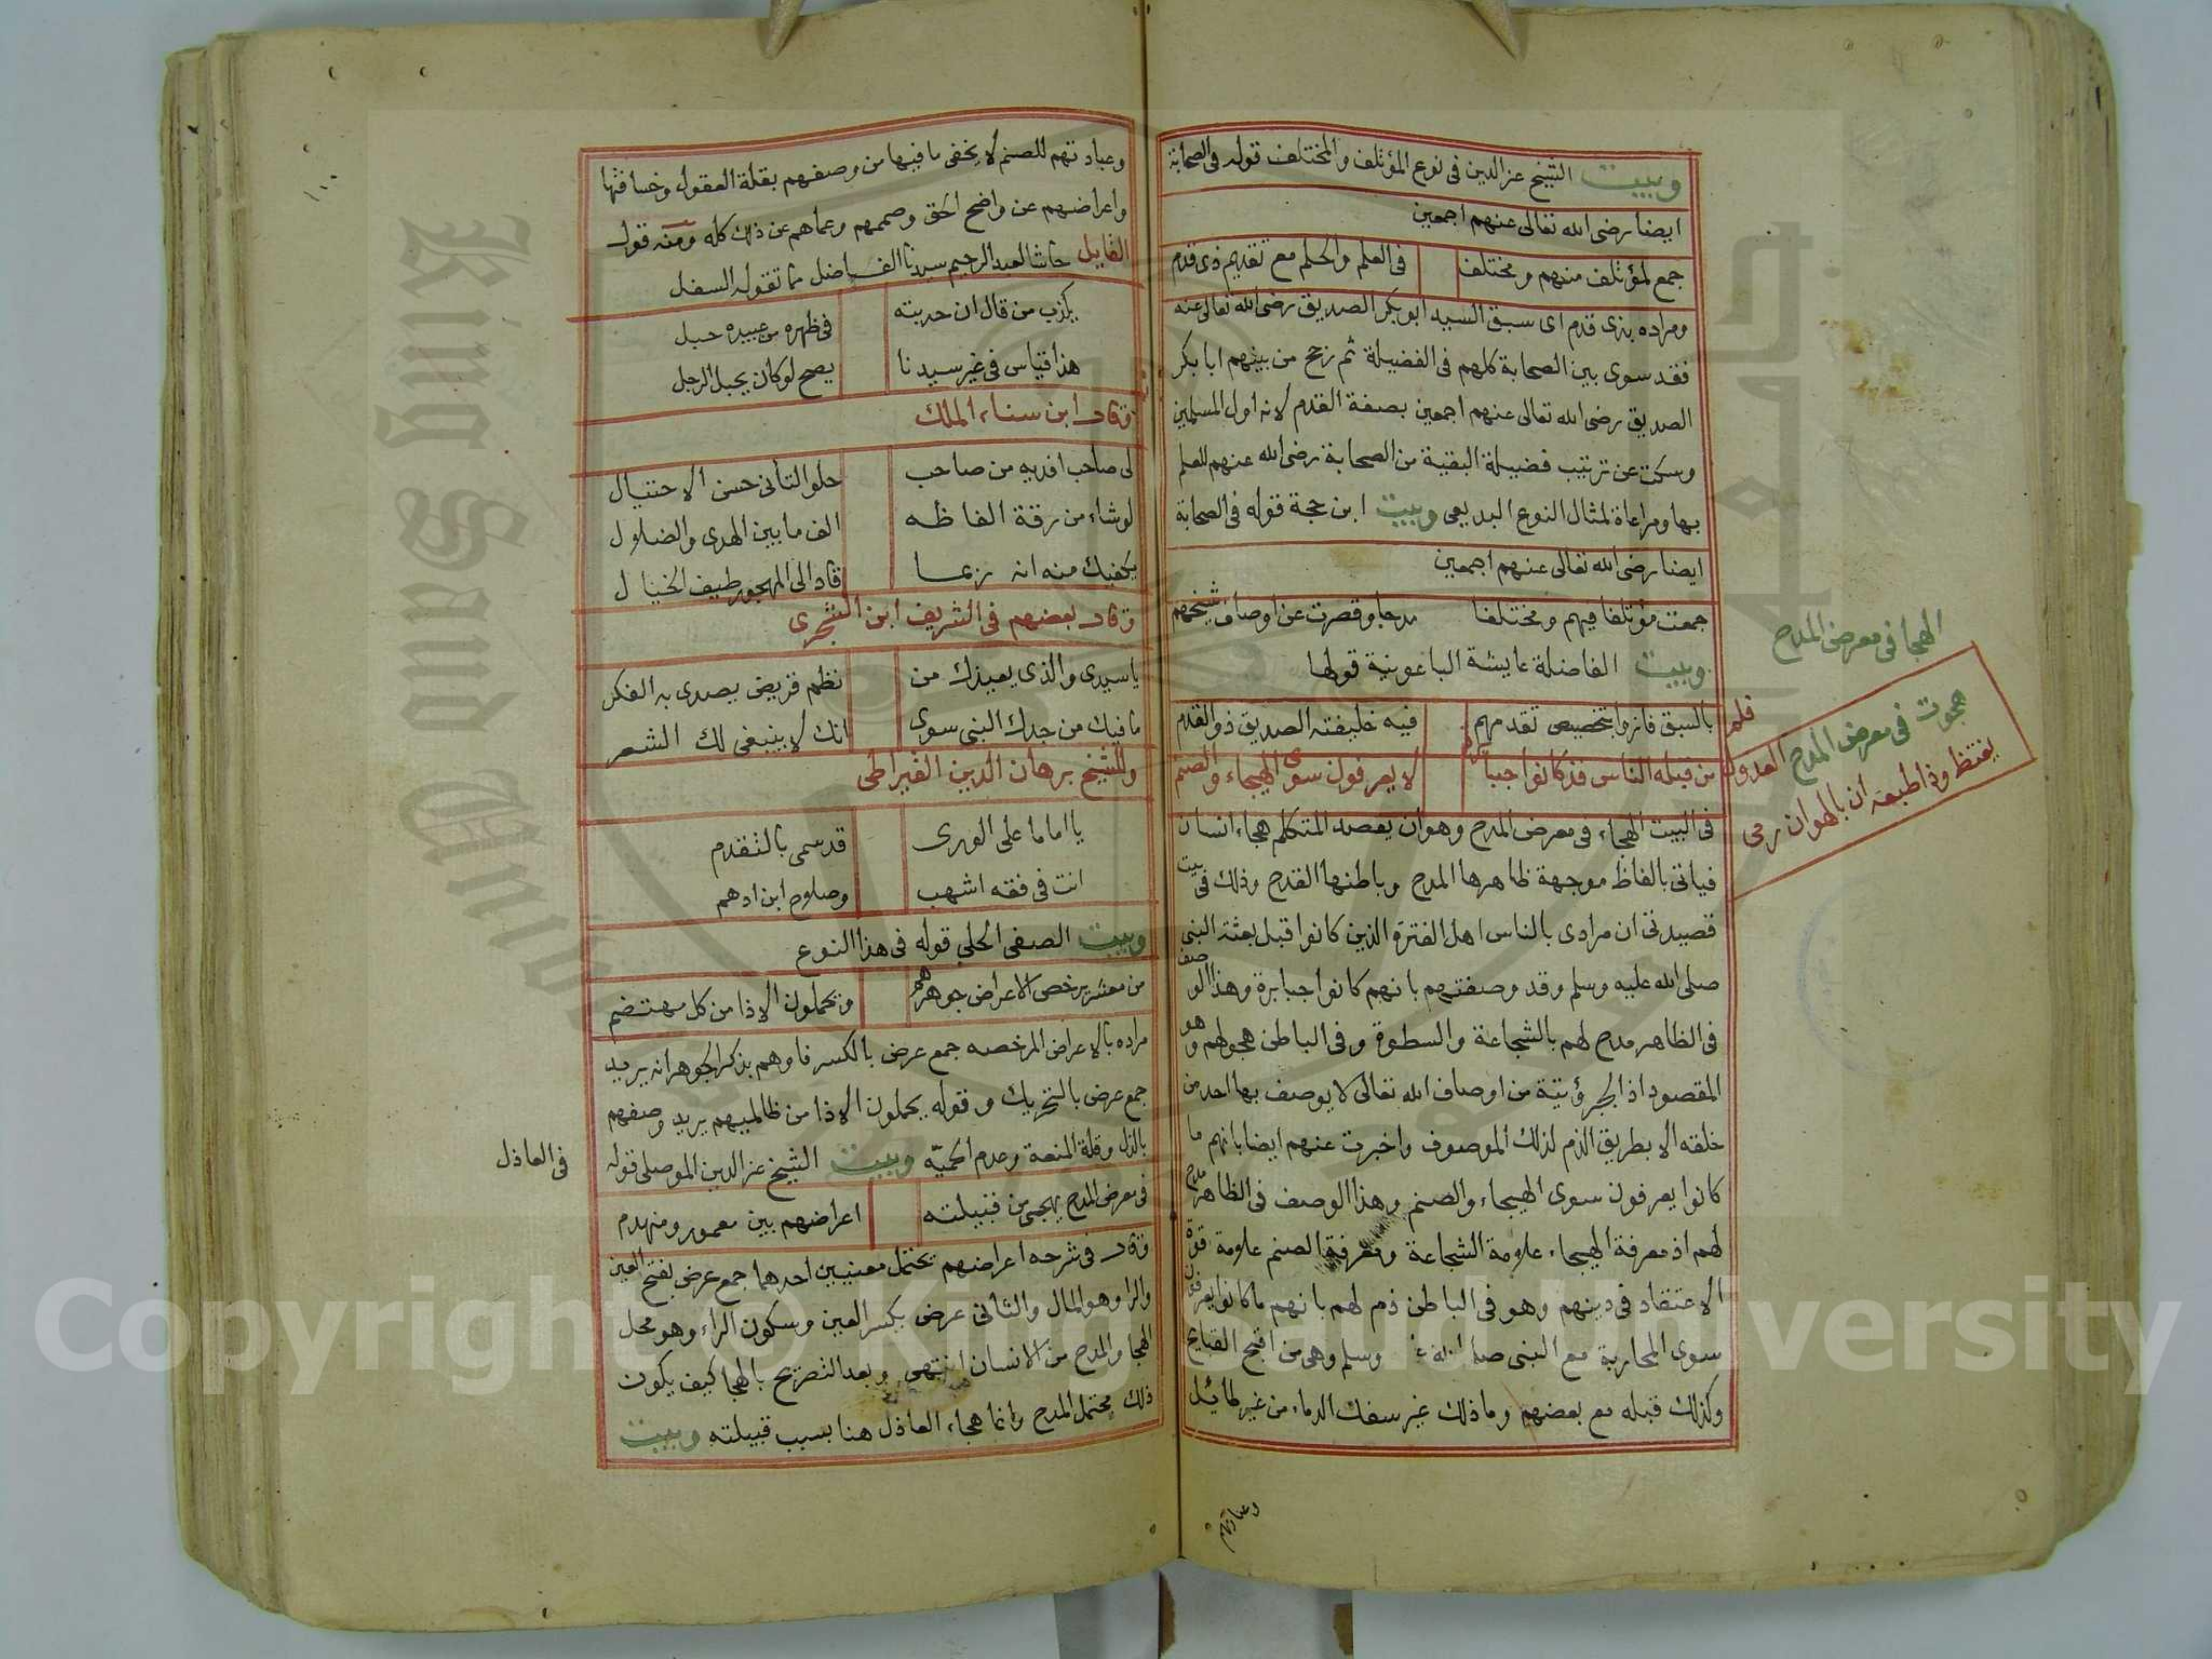 وبيت الشيخ عز الدين فى نوع المؤتلف والمختلف قوله فى الصحابة
ايضا رضى الله تعالى عنهم اجمعين
جمع لمؤتلف منهم ومختلف فى العلم والحلم مع تقديم ذى قدم
ومراده بذى قدم اى سبق السيد ابو بكر الصديق رضى الله تعالى عنه
فقد سوى بين الصحابة كلهم فى الفضيلة ثم رجح من بينهم ابا بكر
الصديق رضى الله تعالى عنهم اجمعين بصفة القدم لانه اول المسلمين
وسكت عن ترتيب فضيلة البقية من الصحابة رضى الله عنهم للعلم
بها ومراعاة لمثال النوع البديعى وبيت ابن حجة قوله فى الصحابة
ايضا رضى الله تعالى عنهم اجمعين
جمعت مؤتلفا فيهم ومختلفا مدحا وقصرت عن اوصاف شيخهم
وبيت الفاضلة عايشة الباعونية قولها
بالسبق فازوا بتخصيص تقدمهم فيه خليفته الصديق ذو القدم
من قبله الناس قد كانوا جبابرة لا يعرفون سوى الهيجاء والصنم
فى البيت الهجاء فى معرض المدح وهو ان يقصد المتكلم هجاء انسان
فياتى بالفاظ موجهة ظاهرها المدح وباطنها القدح وذلك فى بيت
قصيدتى ان مرادى بالناس اهل الفترة الذين كانوا قبل بعثة النبى
صلى الله عليه وسلم وقد وصفتهم بانهم كانوا جبابرة وهذا الوصف
فى الظاهر مدح لهم بالشجاعة والسطوة وفى الباطن هجو لهم وهو
المقصود اذ الجبروتية من اوصاف الله تعالى لا يوصف بها احد من
خلقه الا بطريق الذم لذلك الموصوف واخبرت عنهم ايضا بانهم ما
كانوا يعرفون سوى الهيجاء والصنم وهذا الوصف فى الظاهر مدح
لهم اذ معرفة الهيجاء علامة الشجاعة ومعرفة الصنم علامة قوة
الاعتقاد فى دينهم وهو فى الباطن ذم لهم بانهم ما كانوا يعرفون
سوى المحاربة مع النبى صلى الله وسلم وهى من اقبح القبايح
وكذلك قبله مع بعضهم وما ذلك غير سفك الدماء من غير طائل
وعبادتهم
الهجا فى معرض المدح
هجوت فى معرض المدح العدول فلم
يغتظ وذا طبعه ان بالهوان رمى
وعبادتهم للصنم لا يخفى ما فيها من وصفهم بقلة العقول وخسافتها
واعراضهم عن واضح الحق وصممهم وعماهم عن ذلك كله ومنه قول
القايل حاشا لعبد الرحيم سيدنا الفاضل مما تقوله السفل
يكذب من قال ان حدبته فى ظهره من عبيده حبل
هذا قياس فى غير سيدنا يصح لو كان يحبل الرجل
وقال ابن سناء الملك
لى صاحب افديه من صاحب حلو التأنى حسن الاحتيال
لو شاء من رقة الفاظه الف ما بين الهدى والضلال
يكفيك منه انه ربما قاد الى المهجور طيف الخيال
وقال بعضهم فى الشريف ابن الشجرى
يا سيدى والذى يعيذك من نظم قريض يصدى به الفكر
ما فيك من جدك النبى سوى انك لا ينبغى لك الشعر
وللشيخ برهان الدين القيراطى
يا اماما على الورى قد سمى بالتقدم
انت فى فقه اشهب وصلاح ابن ادهم
وبيت الصفى الحلى قوله فى هذا النوع
من معشر يرخص الاعراض جوهرهم ويحملون الاذا من كل مهتضم
مراده بالاعراض المرخصه جمع عرض بالكسر فاوهم بذكر الجوهر انه يريد
جمع عرض بالتحريك وقوله يحملون الاذا من ظالميهم يريد وصفهم
بالذل وقلة المنعة وعدم الحميّه وبيت الشيخ عز الدين الموصلى قوله
فى العاذل
فى معرض المدح يهجى من قبيلته اعراضهم بين معمور ومنهدم
وقال فى شرحه اعراضهم تحتمل معنيين احدهما جمع عرض بفتح العين
والرا وهو المال والثانى عرض بكسر العين وسكون الراء وهو محل
الهجا والمدح من الانسان انتهى وبعد التصريح بالهجا كيف يكون
ذلك محتمل المدح وانما هجاء العاذل هنا بسبب قبيلته وبيت